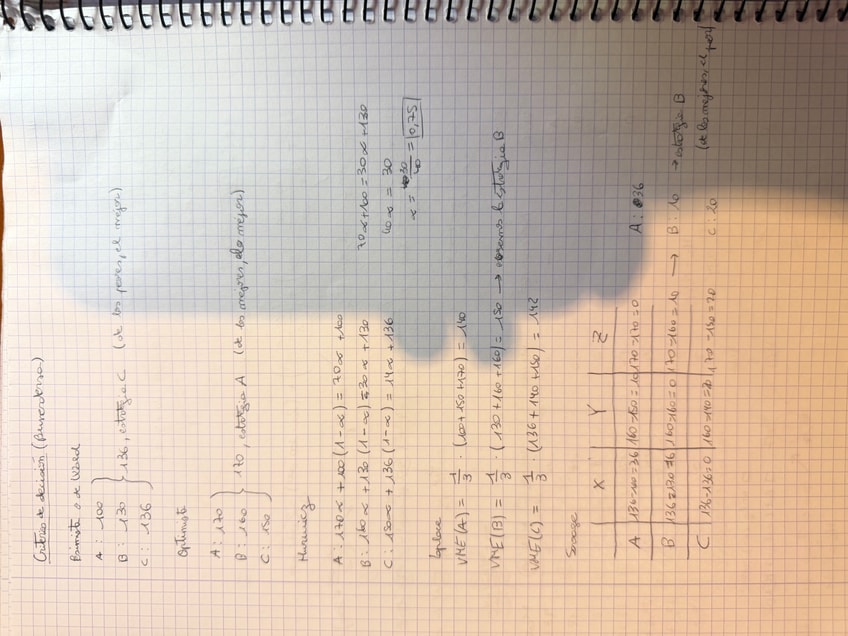 Criterios de decisión (incertidumbre)
Pesimista o de Wald
A : 100
B : 130 } 136, estrategia C (de los peores, el mejor)
C : 136
Optimista
A : 170
B : 160 } 170, estrategia A (de los mejores, el mejor)
C : 150
Hurwicz
A : 170α + 100 (1-α) = 70α + 100
B : 160α + 130 (1-α) = 30α + 130
C : 150α + 136 (1-α) = 14α + 136
70α + 100 = 30α + 130
40α = 30
α = 30/40 = 0,75
Laplace
VME(A) = 1/3 · (100 + 150 + 170) = 140
VME(B) = 1/3 · (130 + 160 + 160) = 150 → estrategia B
VME(C) = 1/3 · (136 + 140 + 150) = 142
Savage
X Y Z
A 136-100=36 160-150=10 170-170=0 A : 36
B 136-130=6 160-160=0 170-160=10 → B : 10 → estrategia B
C 136-136=0 160-140=20 170-150=20 C : 20 (de los mejores, el peor)